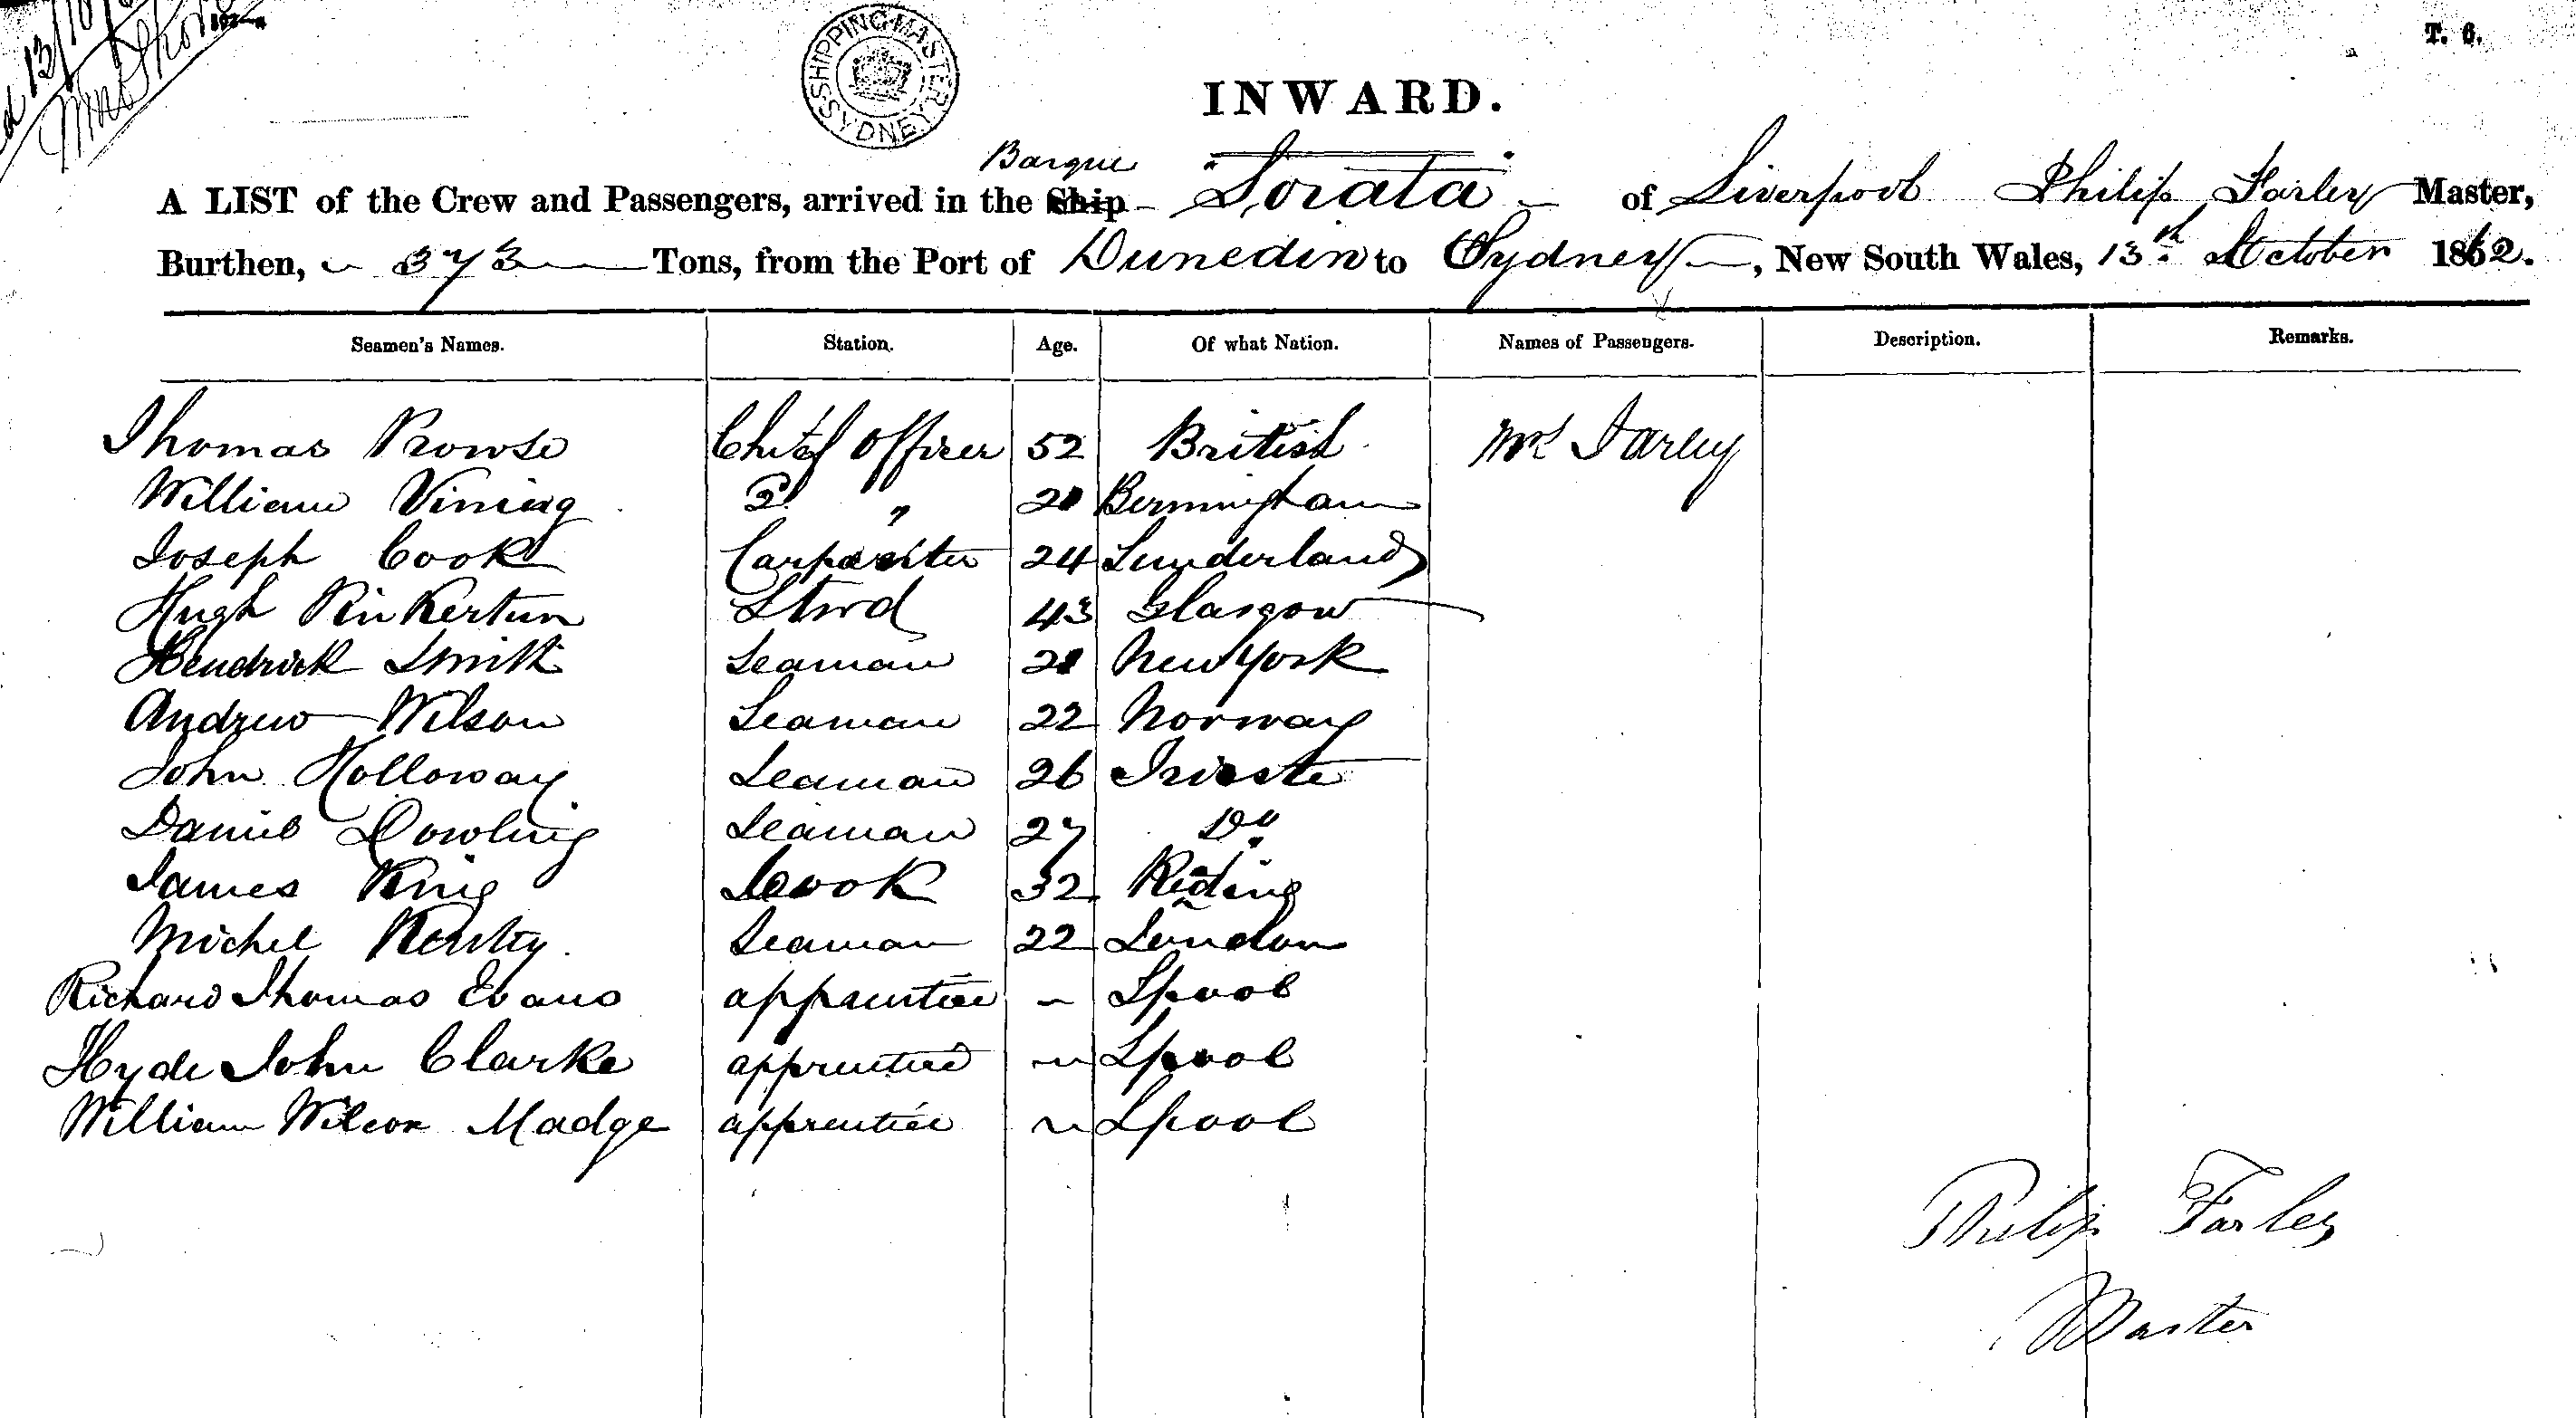 T. 6.
SHIPPING MASTER SYDNEY
INWARD.
Barque
A LIST of the Crew and Passengers, arrived in the Ship "Sorata" of Liverpool Philip Farley Master,
Burthen, 373 Tons, from the Port of Dunedin to Sydney, New South Wales, 13th October 1862.
Seamen's Names. Station. Age. Of what Nation. Names of Passengers. Description. Remarks.
Thomas Prowse Chief Officer 52 British Mrs Farley
William Vining 2d " 21 Birmingham
Joseph Cook Carpenter 24 Sunderland
Hugh Pinkerton Stwd 43 Glasgow
Hendrick Smith Seaman 21 New York
Andrew Wilson Seaman 22 Norway
John Holloway Seaman 26 Trieste
Daniel Dowling Seaman 27 Do
James King Cook 32 Riding
Michel Seaman 22 London
Richard Thomas Evans apprentice ~ Lpool
Hyde John Clarke apprentice ~ Lpool
William Wilcox Madge apprentice ~ Lpool
Philip Farley
Master